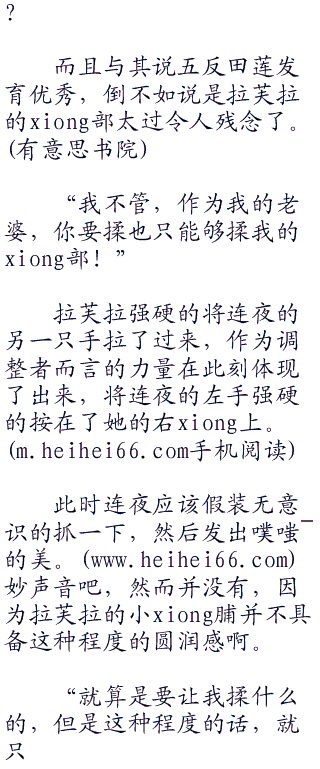 ?
而且与其说五反田莲发
育优秀，倒不如说是拉芙拉
的xiong部太过令人残念了。
(有意思书院)
“我不管，作为我的老
婆，你要揉也只能够揉我的
xiong部！”
拉芙拉强硬的将连夜的
另一只手拉了过来，作为调
整者而言的力量在此刻体现
了出来，将连夜的左手强硬
的按在了她的右xiong上。
(m.heihei66.com手机阅读)
此时连夜应该假装无意
识的抓一下，然后发出噗嗤
的美。(www.heihei66.com)
妙声音吧，然而并没有，因
为拉芙拉的小xiong脯并不具
备这种程度的圆润感啊。
“就算是要让我揉什么
的，但是这种程度的话，就
只